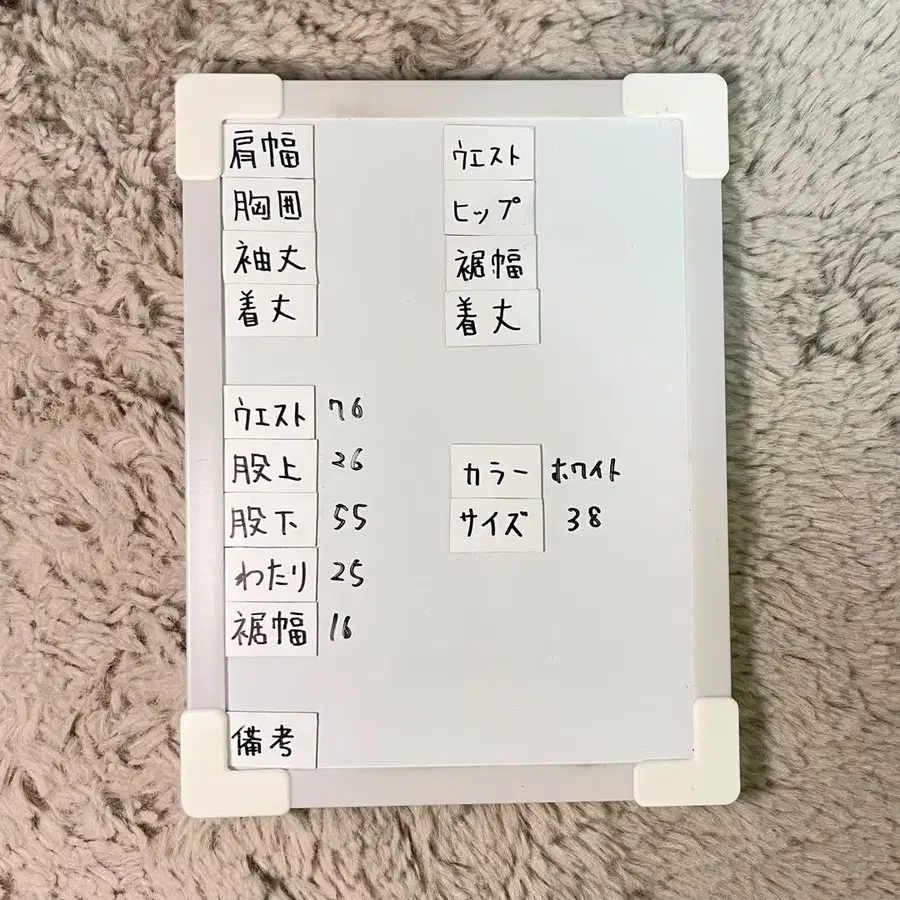 肩幅
胸囲
袖丈
着丈
ウエスト
ヒップ
裾幅
着丈
ウエスト 76
股上 26
股下 55
わたり 25
裾幅 16
カラー ホワイト
サイズ 38
備考